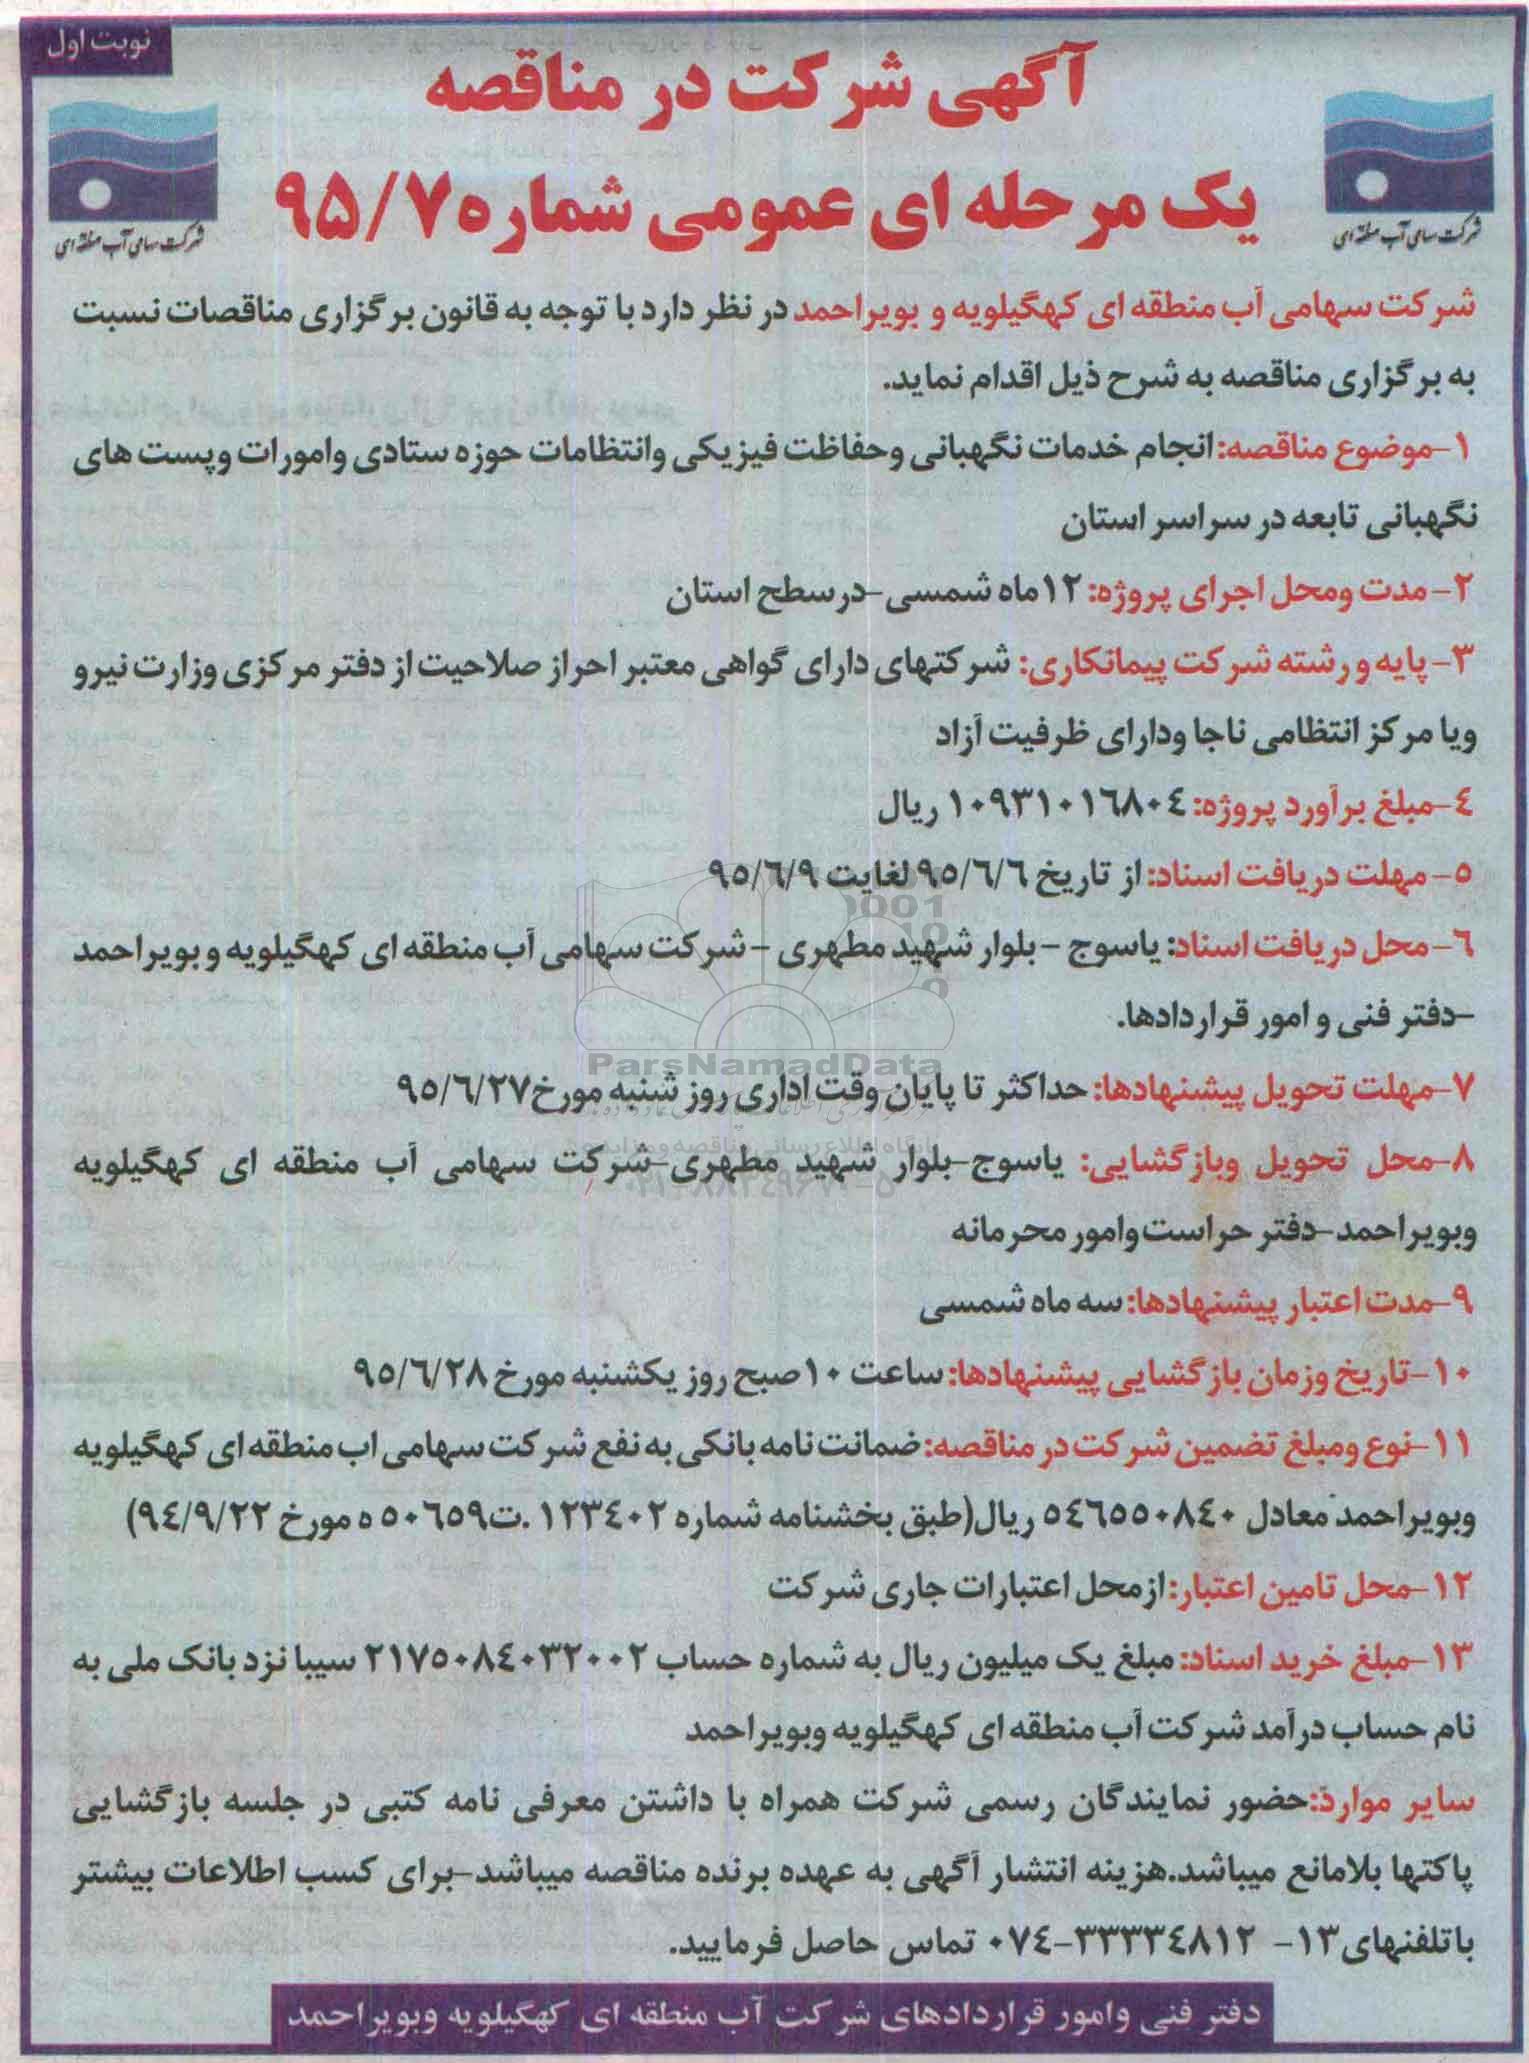 نوبت اول
آگهی شرکت در مناقصه
یک مرحله ای عمومی شماره ۹۵/۷
شرکت سهامی آب منطقه ای
شرکت سهامی آب منطقه ای
شرکت سهامی آب منطقه ای کهگیلویه و بویراحمد در نظر دارد با توجه به قانون برگزاری مناقصات نسبت
به برگزاری مناقصه به شرح ذیل اقدام نماید.
۱-موضوع مناقصه: انجام خدمات نگهبانی وحفاظت فیزیکی وانتظامات حوزه ستادی وامورات وپست های
نگهبانی تابعه در سراسر استان
۲- مدت ومحل اجرای پروژه: ۱۲ماه شمسی-درسطح استان
۳- پایه و رشته شرکت پیمانکاری: شرکتهای دارای گواهی معتبر احراز صلاحیت از دفتر مرکزی وزارت نیرو
ویا مرکز انتظامی ناجا ودارای ظرفیت آزاد
٤-مبلغ برآورد پروژه: ۱۰۹۳۱۰۱٦۸۰٤ ریال
۵- مهلت دریافت اسناد: از تاریخ ۹۵/٦/٦ لغایت ۹۵/٦/۹
٦- محل دریافت اسناد: یاسوج - بلوار شهید مطهری - شرکت سهامی آب منطقه ای کهگیلویه و بویراحمد
-دفتر فنی و امور قراردادها.
ParsNamadData
۷-مهلت تحویل پیشنهادها: حداکثر تا پایان وقت اداری روز شنبه مورخ ۹۵/٦/۲۷
۸-محل تحویل وبازگشایی: یاسوج-بلوار شهید مطهری-شرکت سهامی آب منطقه ای کهگیلویه
وبویراحمد-دفتر حراست وامور محرمانه
۹-مدت اعتبار پیشنهادها: سه ماه شمسی
۱۰-تاریخ وزمان بازگشایی پیشنهادها: ساعت ۱۰صبح روز یکشنبه مورخ ۹۵/٦/۲۸
۱۱-نوع ومبلغ تضمین شرکت در مناقصه: ضمانت نامه بانکی به نفع شرکت سهامی اب منطقه ای کهگیلویه
وبویراحمد معادل ۵٤٦۵۵۰۸٤۰ ریال(طبق بخشنامه شماره ۱۲۳٤۰۲ .ت۵۰٦۵۹ ه مورخ ۹٤/۹/۲۲)
۱۲-محل تامین اعتبار: ازمحل اعتبارات جاری شرکت
۱۳-مبلغ خرید اسناد: مبلغ یک میلیون ریال به شماره حساب ۲۱۷۵۰۸٤۰۳۲۰۰۲ سیبا نزد بانک ملی به
نام حساب درآمد شرکت آب منطقه ای کهگیلویه وبویراحمد
سایر موارد:حضور نمایندگان رسمی شرکت همراه با داشتن معرفی نامه کتبی در جلسه بازگشایی
پاکتها بلامانع میباشد.هزینه انتشار آگهی به عهده برنده مناقصه میباشد-برای کسب اطلاعات بیشتر
باتلفنهای ۱۳- ۰۷٤-۳۳۳۳٤۸۱۲ تماس حاصل فرمایید.
دفتر فنی وامور قراردادهای شرکت آب منطقه ای کهگیلویه وبویراحمد